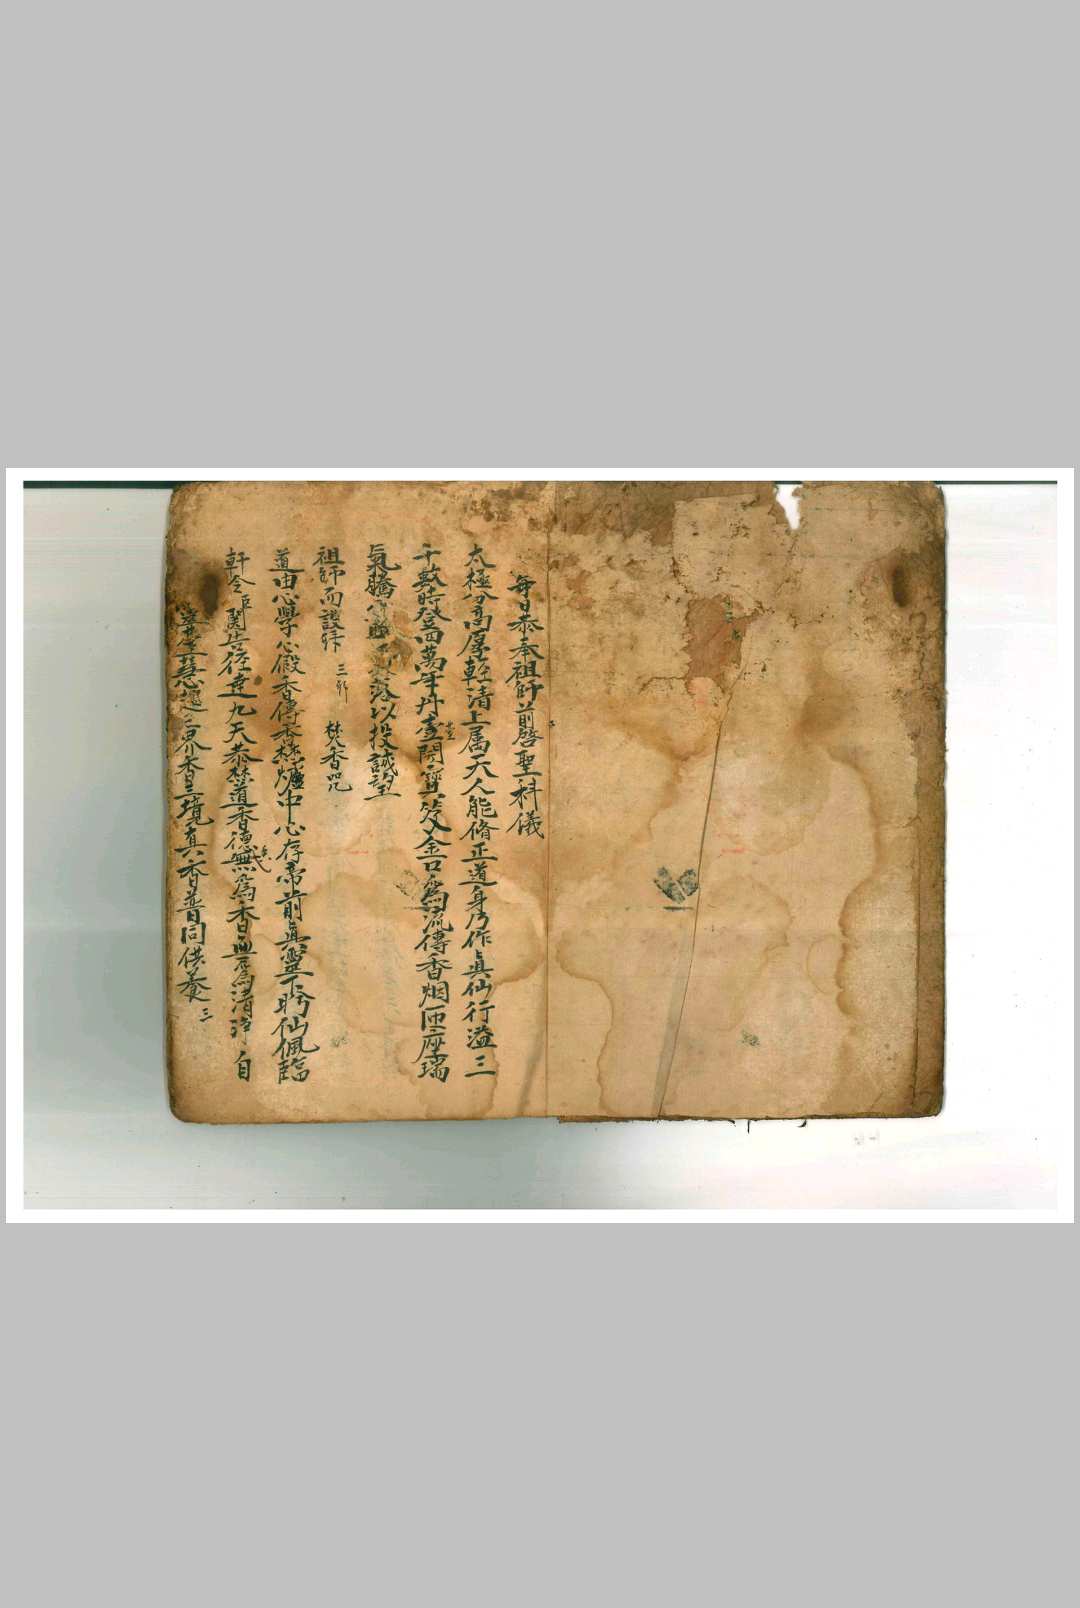 每日恭奉祖師前啓聖科儀
太極分高厚輕清上属天人能脩正道身乃作真仙行溢三
千數時登四萬年丹臺開寶笈金口為流傳香烟匝座瑞
氣騰以投誠望
祖師而謢炁 三祈 焚香咒
道由心學心假香傳香焚爐中心存帝前真靈下盻仙佩臨
軒令臣關告徑達九天恭焚道香德香無為香無為清淨自
慧超三界香三境真香普同供養 三